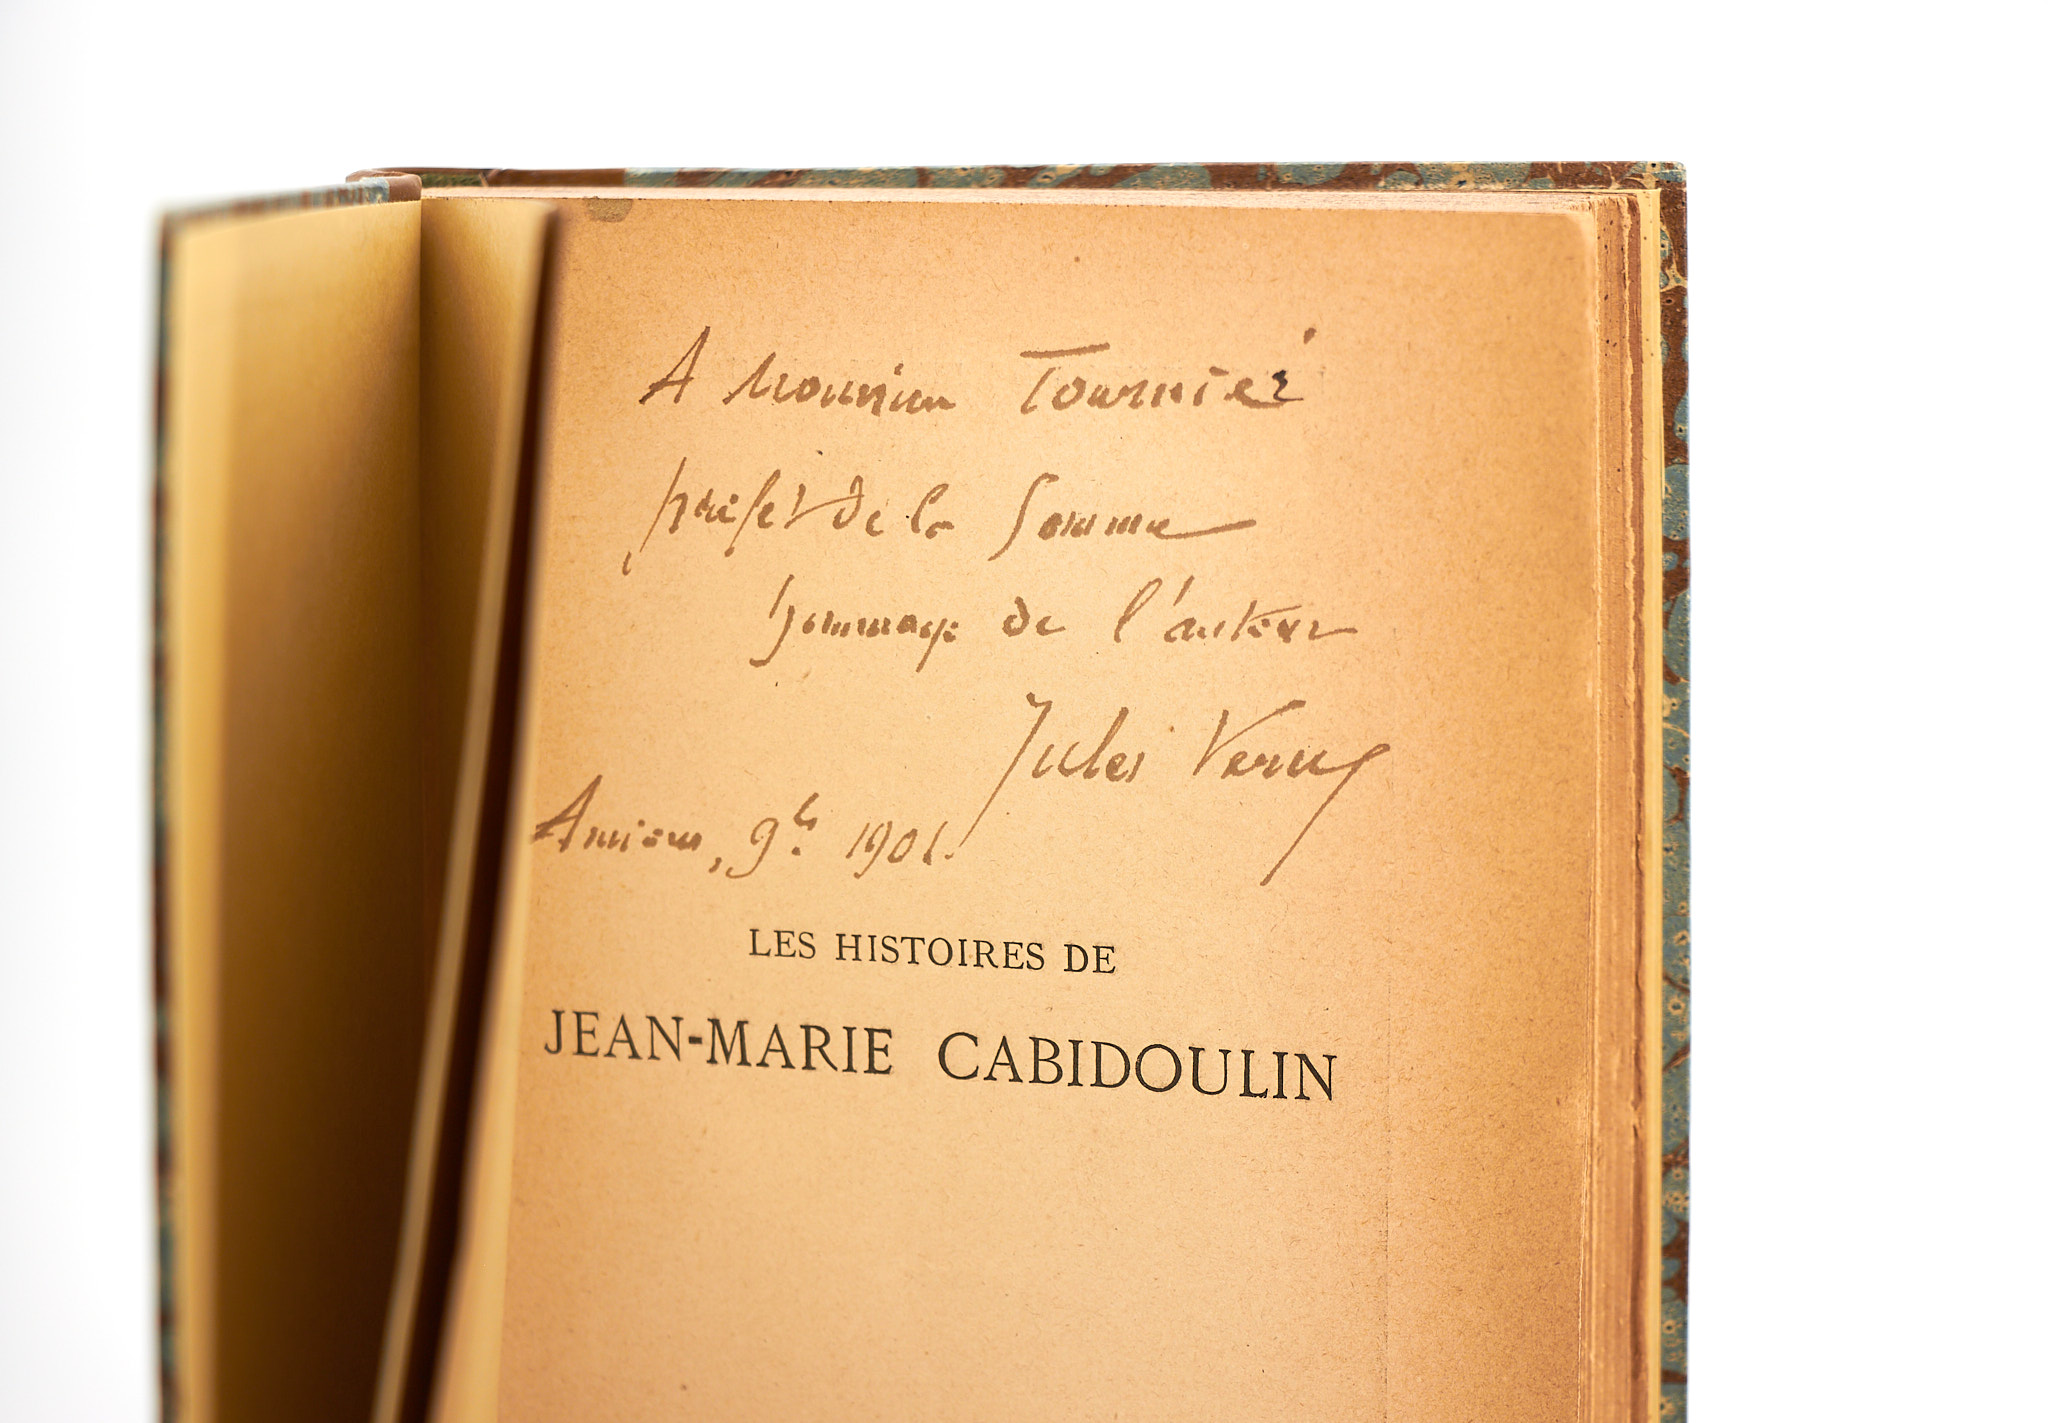 A Monsieur Tournier
préfet de la Somme
hommage de l'auteur
Jules Verne
Amiens, 9bre 1901.
LES HISTOIRES DE
JEAN-MARIE CABIDOULIN